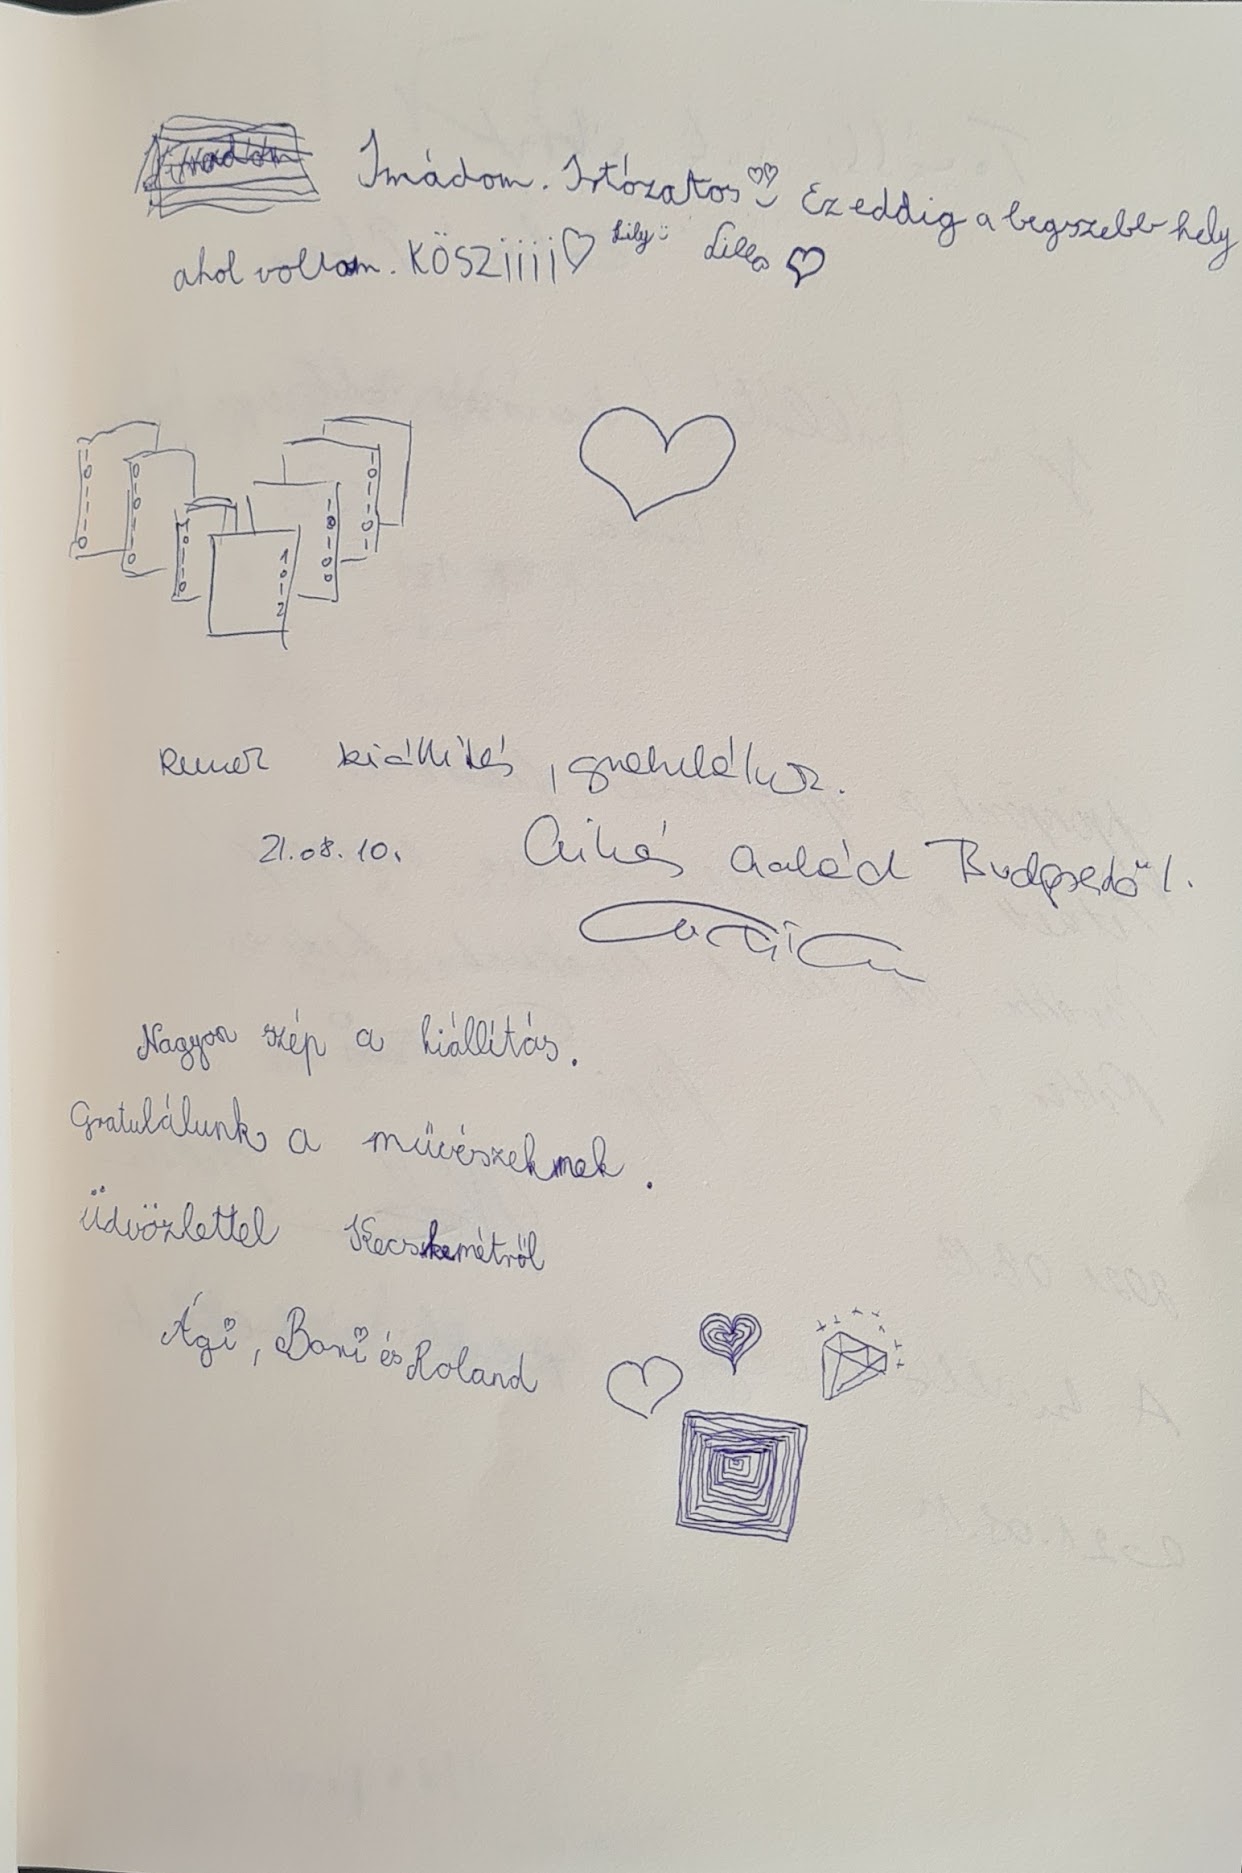 Imádom. Istózatos Ez eddig a legszebb hely
ahol voltam. KÖSZiiii Lily Lilla
1 0 1 2
Remek kiállítás, gratulálok.
21.08.10. család Budapestről.
Nagyon szép a kiállítás.
Gratulálunk a művészeknek.
Üdvözlettel Kecskemétről
Ági, Boni és Roland